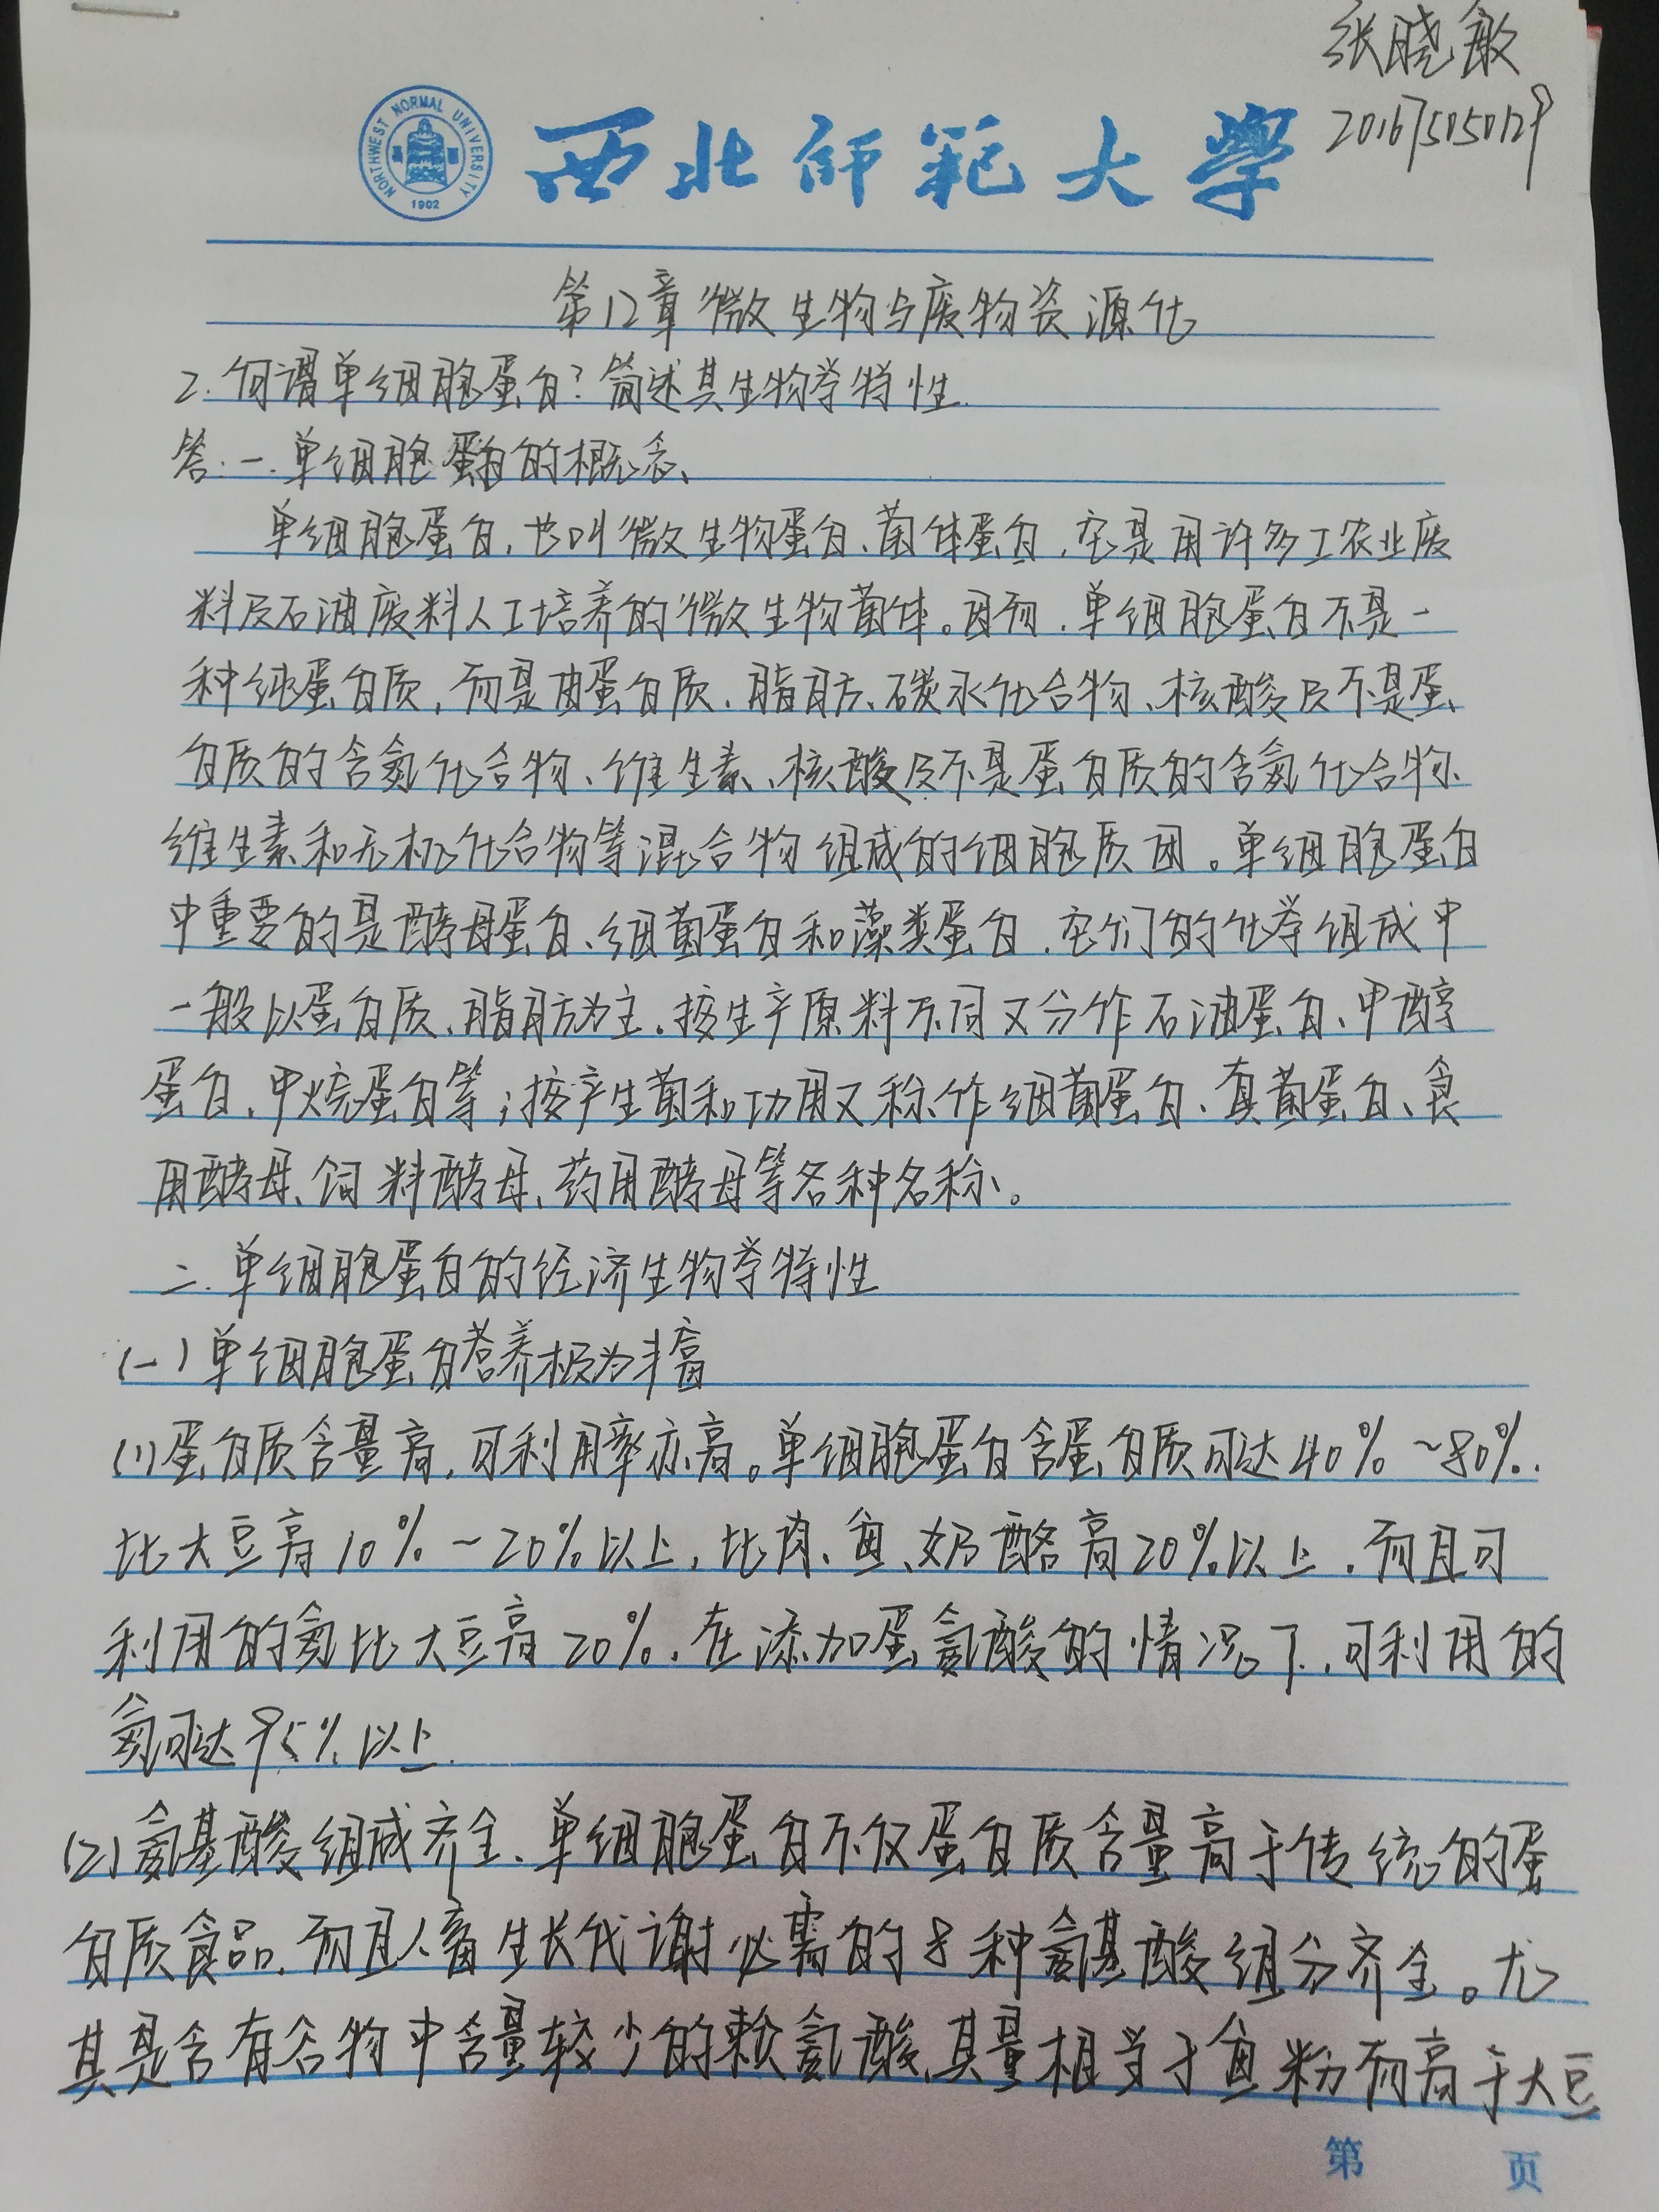 张晓敏
201675050129
NORTHWEST NORMAL UNIVERSITY
1902
西北师范大学
第12章 微生物与废物资源化
2. 何谓单细胞蛋白?简述其生物学特性.
答:一.单细胞蛋白的概念、
单细胞蛋白,也叫微生物蛋白、菌体蛋白,它是用许多工农业废
料及石油废料人工培养的微生物菌体。因而,单细胞蛋白不是一
种纯蛋白质,而是由蛋白质、脂肪、碳水化合物、核酸及不是蛋
白质的含氮化合物、维生素、核酸及不是蛋白质的含氮化合物、
维生素和无机化合物等混合物组成的细胞质团。单细胞蛋白
中重要的是酵母蛋白、细菌蛋白和藻类蛋白,它们的化学组成中
一般以蛋白质、脂肪为主。按生产原料不同又分作石油蛋白、甲醇
蛋白、甲烷蛋白等;按产生菌和功用又称作细菌蛋白、真菌蛋白、食
用酵母、饲料酵母、药用酵母等各种名称。
二.单细胞蛋白的经济生物学特性
(一)单细胞蛋白营养极为丰富
(1)蛋白质含量高,可利用率亦高。单细胞蛋白含蛋白质可达40%~80%.
比大豆高10%~20%以上,比肉、鱼、奶酪高20%以上,而且可
利用的氮比大豆高20%.在添加蛋氨酸的情况下,可利用的
氮可达95%以上.
(2)氨基酸组成齐全、单细胞蛋白不仅蛋白质含量高于传统的蛋
白质食品,而且人畜生长代谢必需的8种氨基酸组分齐全。尤
其是含有谷物中含量较少的赖氨酸,其量相当于鱼粉而高于大豆
第 页